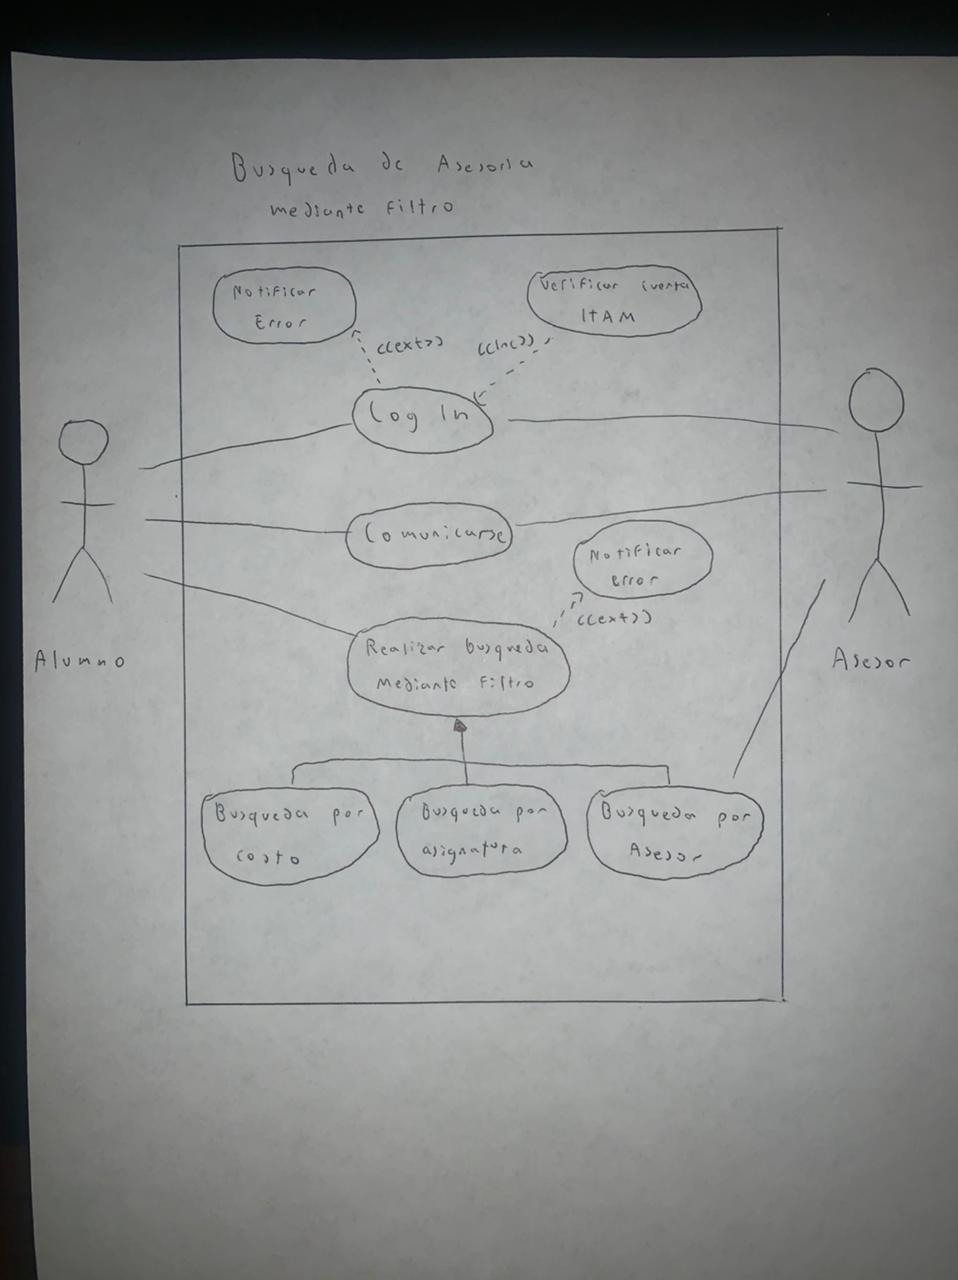 Busqueda de Asesoria
mediante Filtro
Notificar
Error
Verificar cuenta
ITAM
<<ext>>
<<inc>>
Log In
Comunicarse
Notificar
error
<<ext>>
Realizar busqueda
mediante Filtro
Alumno
Asesor
Busqueda por
costo
Busqueda por
asignatura
Busqueda por
Asesor